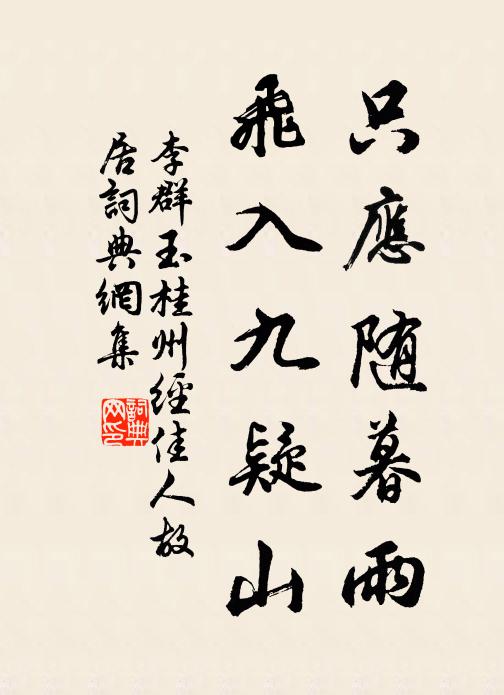 只應随暮雨
飛入九疑山
李群玉桂州經佳人故
居詞典網集
詞典
网印